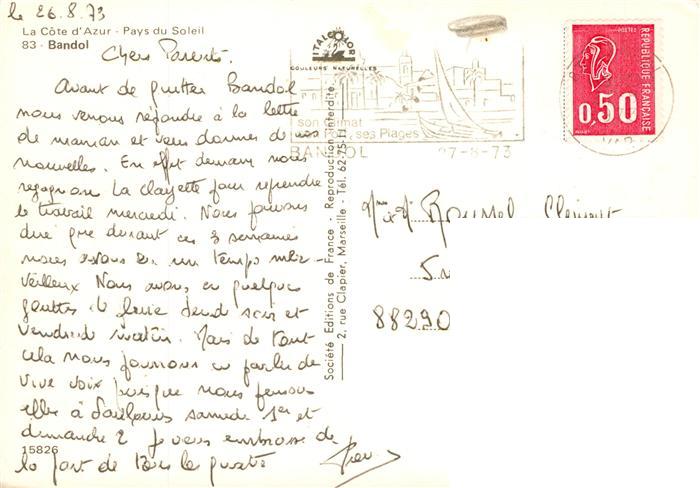 le 26.8.73
La Côte d'Azur - Pays du Soleil
83 - Bandol
Chers Parents.
Avant de quitter Bandol
nous venons répondre à la lettre
de maman et vous donner de nos
nouvelles. En effet demain nous
regagnons La Clayette pour reprendre
le travail mercredi. Nous pouvons
dire que durant ces 3 semaines
nous avons eu un temps mer-
veilleux Nous avons eu quelques
gouttes de pluie jeudi soir et
vendredi matin. Mais de tout
cela nous pourrons en parler de
vive voix puisque nous pensons
aller à samedi 1er et
dimanche 2 je vous embrasse de
la part de tous les quatre
15826
ITALCOLOR
COULEURS NATURELLES
son Climat
son Port, ses Plages
BANDOL 27-8-73
POSTES
REPUBLIQUE FRANÇAISE
0,50
VAR
Société Editions de France - Reproduction interdite.
2, rue Clapier, Marseille - Tél. 62-75-11
Mme & Mr Clément
88290